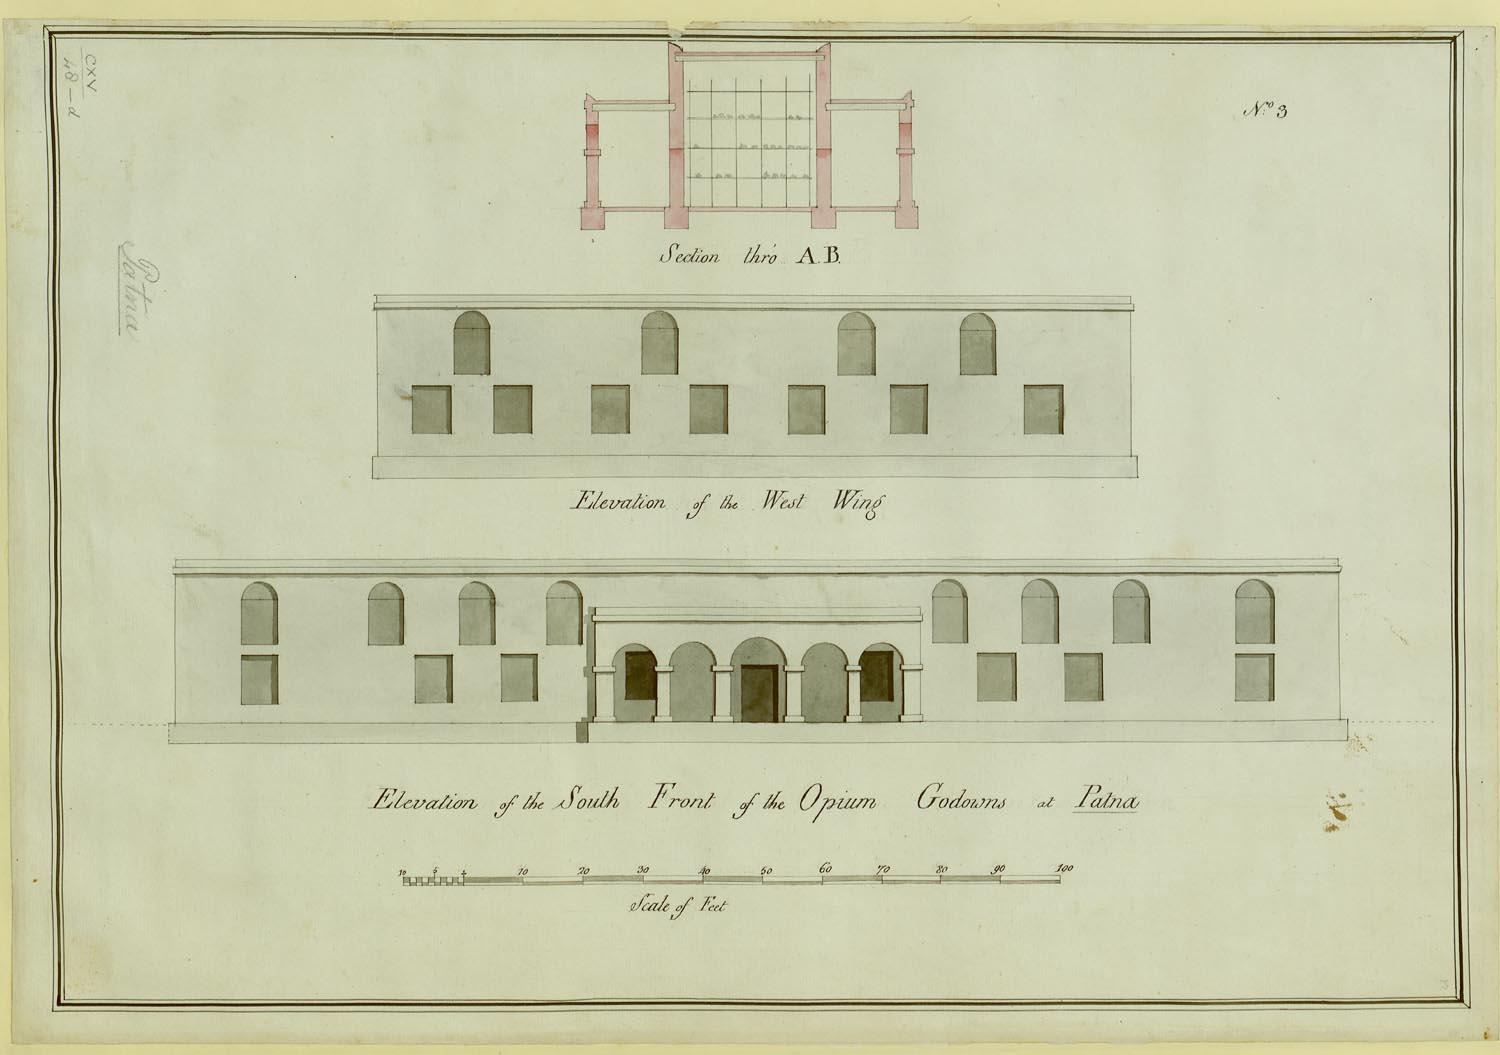 CXV
48-d
Patna
No. 3
Section thro' A.B.
Elevation of the West Wing
Elevation of the South Front of the Opium Godowns at Patna
10 5 10 20 30 40 50 60 70 80 90 100
Scale of Feet